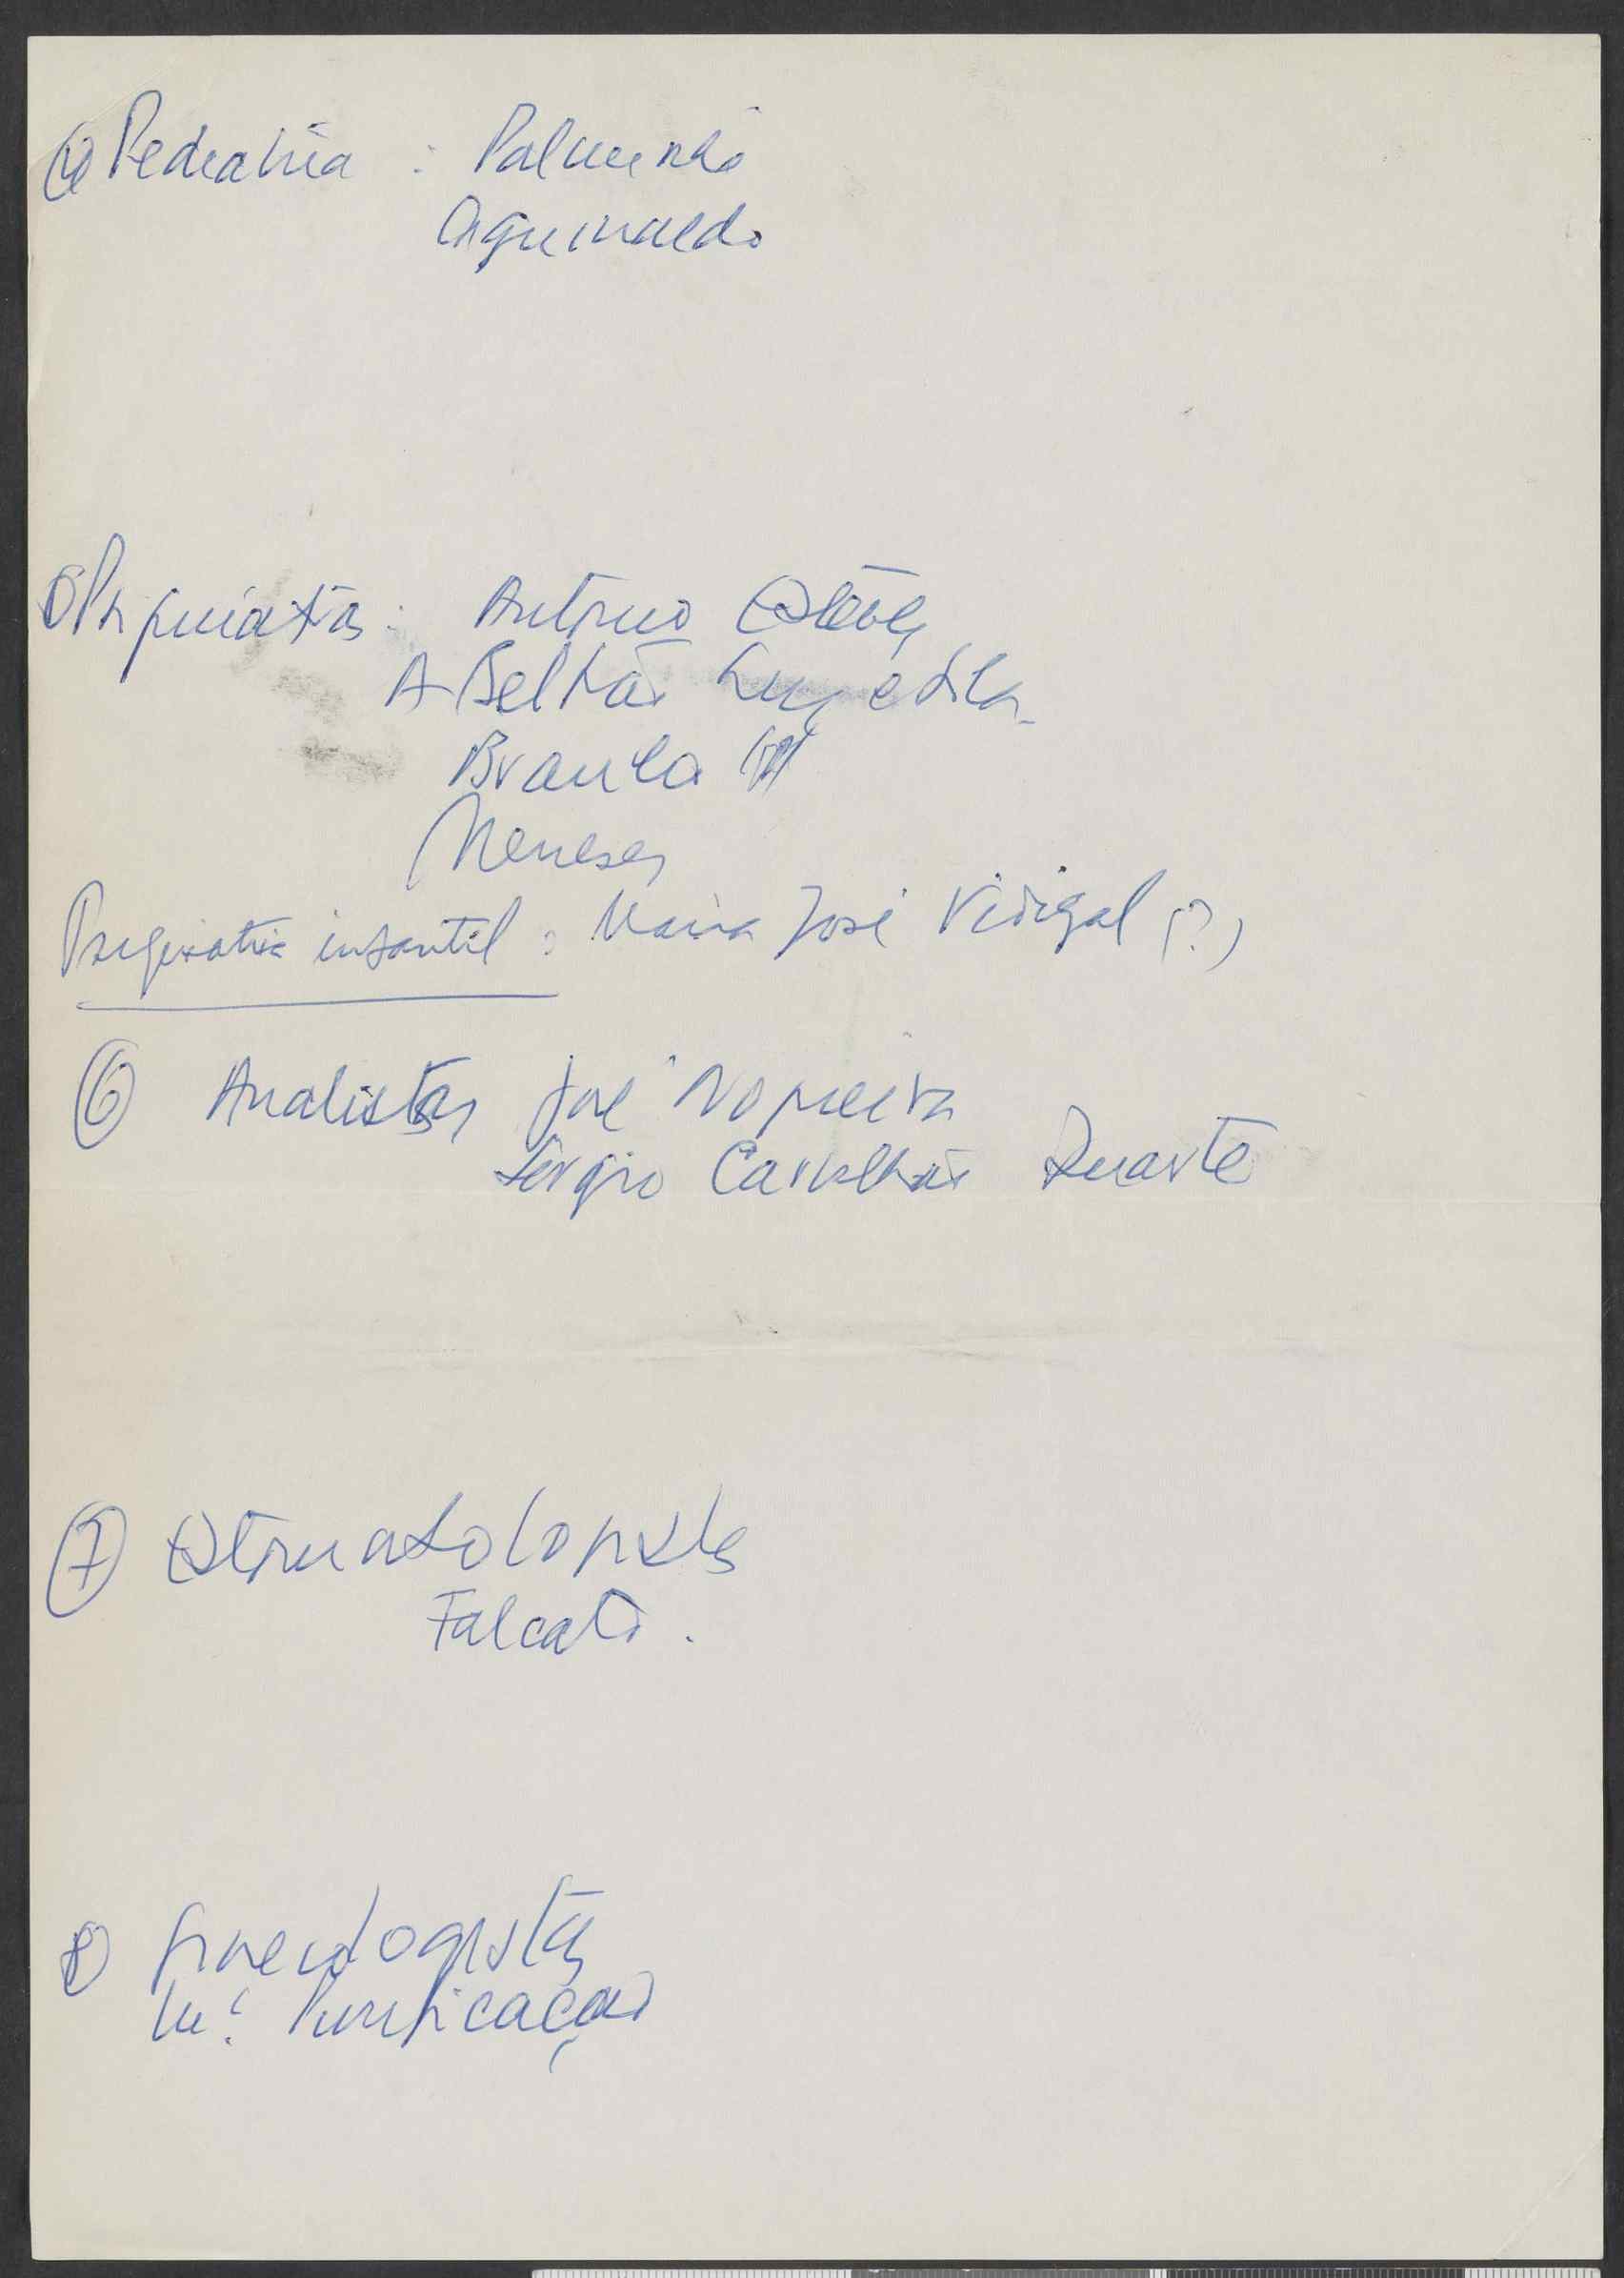 ④ Pediatria : Palminha
Aguinaldo
⑤ Psiquiatras : António Esteves
A Beltrão
Branca
Meneses
Psiquiatria infantil : Maria José Vidigal (?)
⑥ Analistas José Nogueira
Sérgio Carvalhão Duarte
⑦ Estomatologista
Falcato.
⑧ Ginecologistas
Mª. Purificação